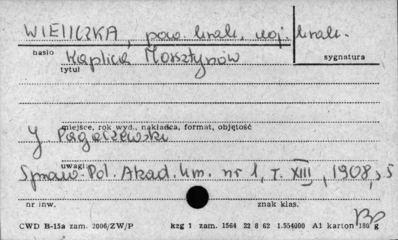 WIELICZKA, pow. krak. woj. krak.
hasło
Kaplica Morsztynów
sygnatura
tytuł
miejsce, rok wyd., nakładca, format, objętość
J Pagaczewski
uwagi
Spraw. Pol. Akad. Um. nr 1, T. XIII, 1908, s
nr inw.
znak klas.
CWD B-15a zam. 2006/ZW/P kzg 1 zam. 1564 22 8 62 1.554000 A1 karton 180 g